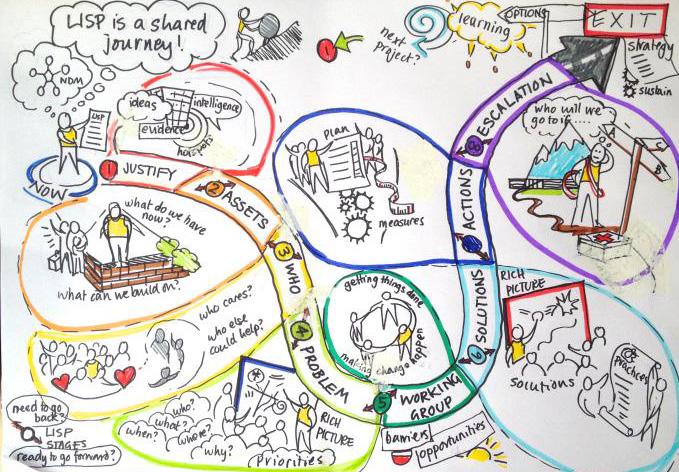 LISP is a shared
journey!
NDM
LISP
NOW
ideas
intelligence
evidence
hotspots
1 JUSTIFY
2 ASSETS
3 WHO
4 PROBLEM
5 WORKING
GROUP
6 SOLUTIONS
ACTIONS
8 ESCALATION
what do we have
now?
what can we build on?
who cares?
who else
could help?
need to go
back?
LISP
STAGES
ready to go forward?
who?
what?
when?
where?
why?
RICH
PICTURE
Priorities
getting things done
making change happen
barriers
opportunities
RICH
PICTURE
solutions
Practices
Plan
measures
who will we
go to if....
A
B
C
next
project?
learning
OPTIONS
EXIT
strategy
sustain